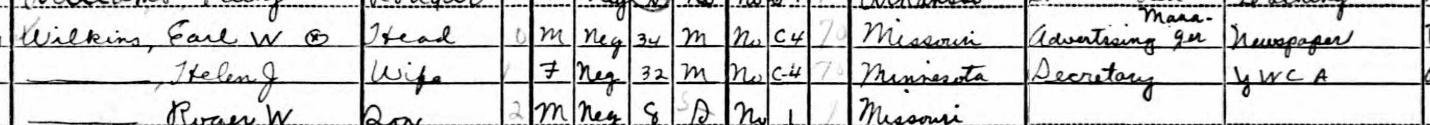 Wilkins, Earl W ⓧ Head 0 M Neg 34 M No C4 70 Missouri Advertising Manager Newspaper
——— , Helen J Wife 1 F Neg 32 M No C-4 70 Minnesota Secretary YWCA
——— Roger W Son 2 M Neg 8 S No 1 Missouri